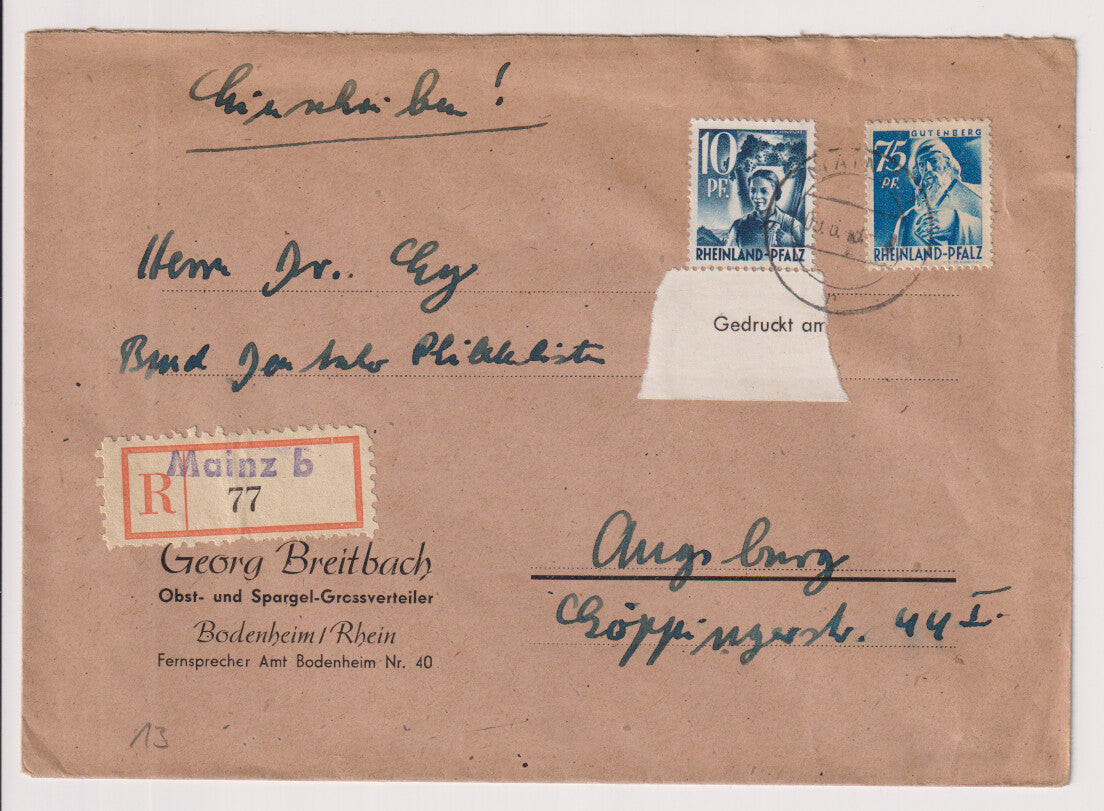 Einschreiben!
10
PF.
RHEINLAND-PFALZ
GUTENBERG
75
PF.
RHEINLAND-PFALZ
Herrn Dr.
Gedruckt am
Bund Philatelisten
Mainz b
R 77
Georg Breitbach
Obst- und Spargel-Grossverteiler
Bodenheim/Rhein
Fernsprecher Amt Bodenheim Nr. 40
Augsburg
Göppingerstr. 44 I.
13